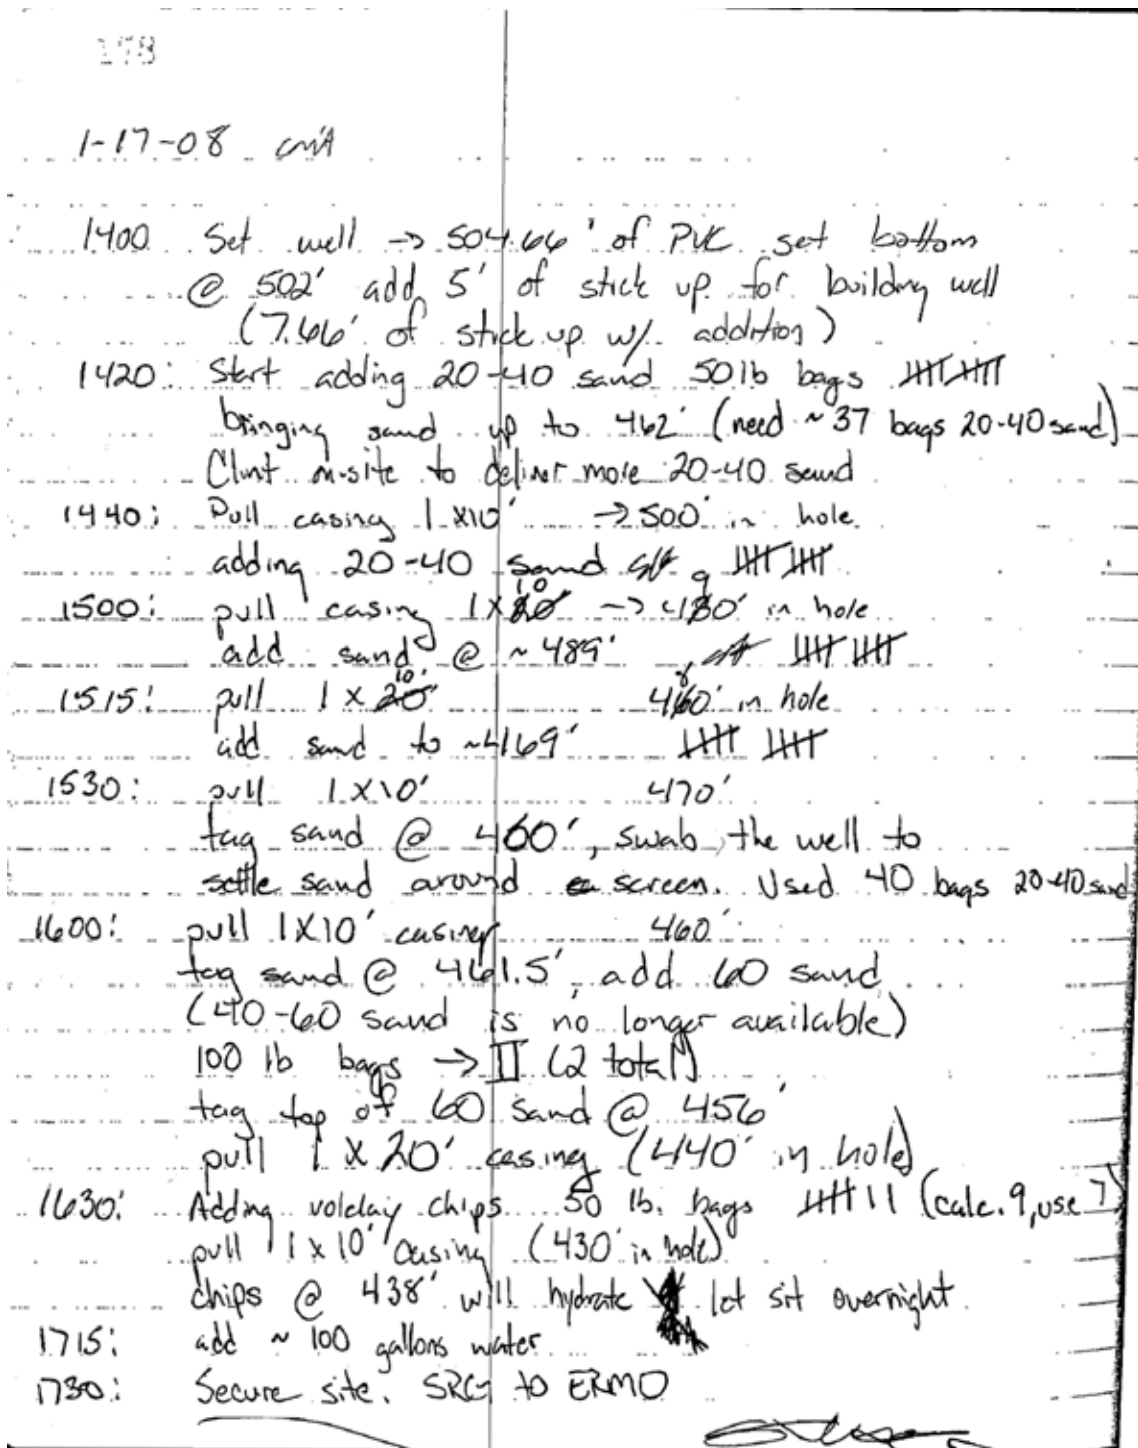 178
1-17-08
1400 Set well → 504.66' of PVC set bottom
@ 502' add 5' of stick up for building well
(7.66' of stick up w/ addition)
1420: Start adding 20-40 sand 50 lb bags 𝍸 𝍸
bringing sand up to 462' (need ~ 37 bags 20-40 sand)
Clint on-site to deliver more 20-40 sand
1440: Pull casing 1 x10' → 500' in hole
adding 20-40 sand 𝍸 𝍸
1500: pull casing 1 x 10' → 490' in hole
add sand @ ~ 489' 𝍸 𝍸
1515: pull 1 x 10' 480' in hole
add sand to ~469' 𝍸 𝍸
1530: pull 1 x 10' 470'
tag sand @ 460', swab the well to
settle sand around screen. Used 40 bags 20-40 sand
1600: pull 1x10' casing 460'
tag sand @ 461.5', add 60 sand
(40-60 sand is no longer available)
100 lb bags → II (2 total)
tag top of 60 sand @ 456'
pull 1 x 20' casing (440' in hole)
1630: Adding volclay chips 50 lb. bags 𝍸 11 (calc. 9, use 7)
pull 1 x 10' casing (430' in hole)
chips @ 438' will hydrate let sit overnight
1715: add ~ 100 gallons water
1730: Secure site. SRG to ERMO